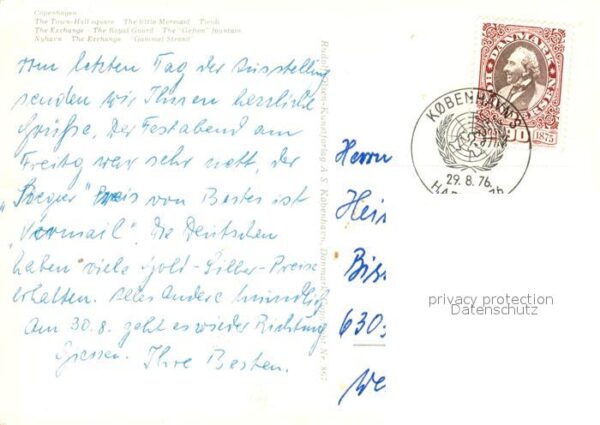 Copenhagen
The Town-Hall square The little Mermaid Tivoli
The Exchange The Royal Guard The "Gefion" fountain
Nyhavn The Exchange "Gammel Strand"
Vom letzten Tag der Ausstellung
senden wir Ihnen herzliche
Grüße. Der Festabend am
Freitag war sehr nett, der
" Preis von Bestes ist
"Vermail". Die Deutschen
haben viele Gold-Silber-Preise
erhalten. Alles Andere mündlich
Am 30.8. geht es wieder Richtung
Giessen. Ihre Besten.
Rudolf Kunstforlag A.S. København, Danmark
DANMARK
90
1875
KØBENHAVN
29.8.76
HAFNIA 76
Herrn
Hei
Bis
630
We
privacy protection
Datenschutz